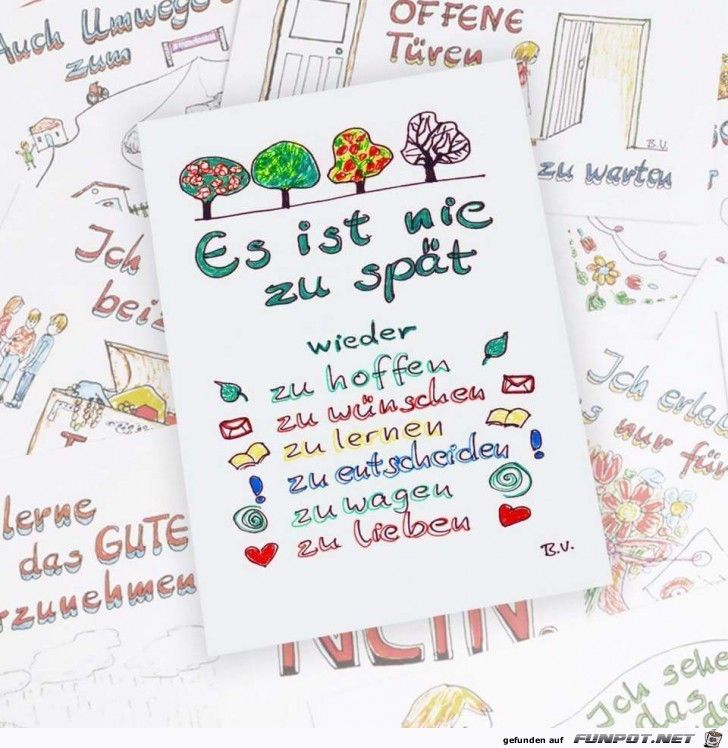 Auch Umwege
zum
OFFENE
Türen
B.V.
zu warten
Es ist nie
zu spät
wieder
zu hoffen
zu wünschen
zu lernen
zu entscheiden
zu wagen
zu lieben
B.V.
Ich
Ich
nur für
lerne
das GUTE
NEIN.
Ich sehe
das
gefunden auf FUNPOT.NET